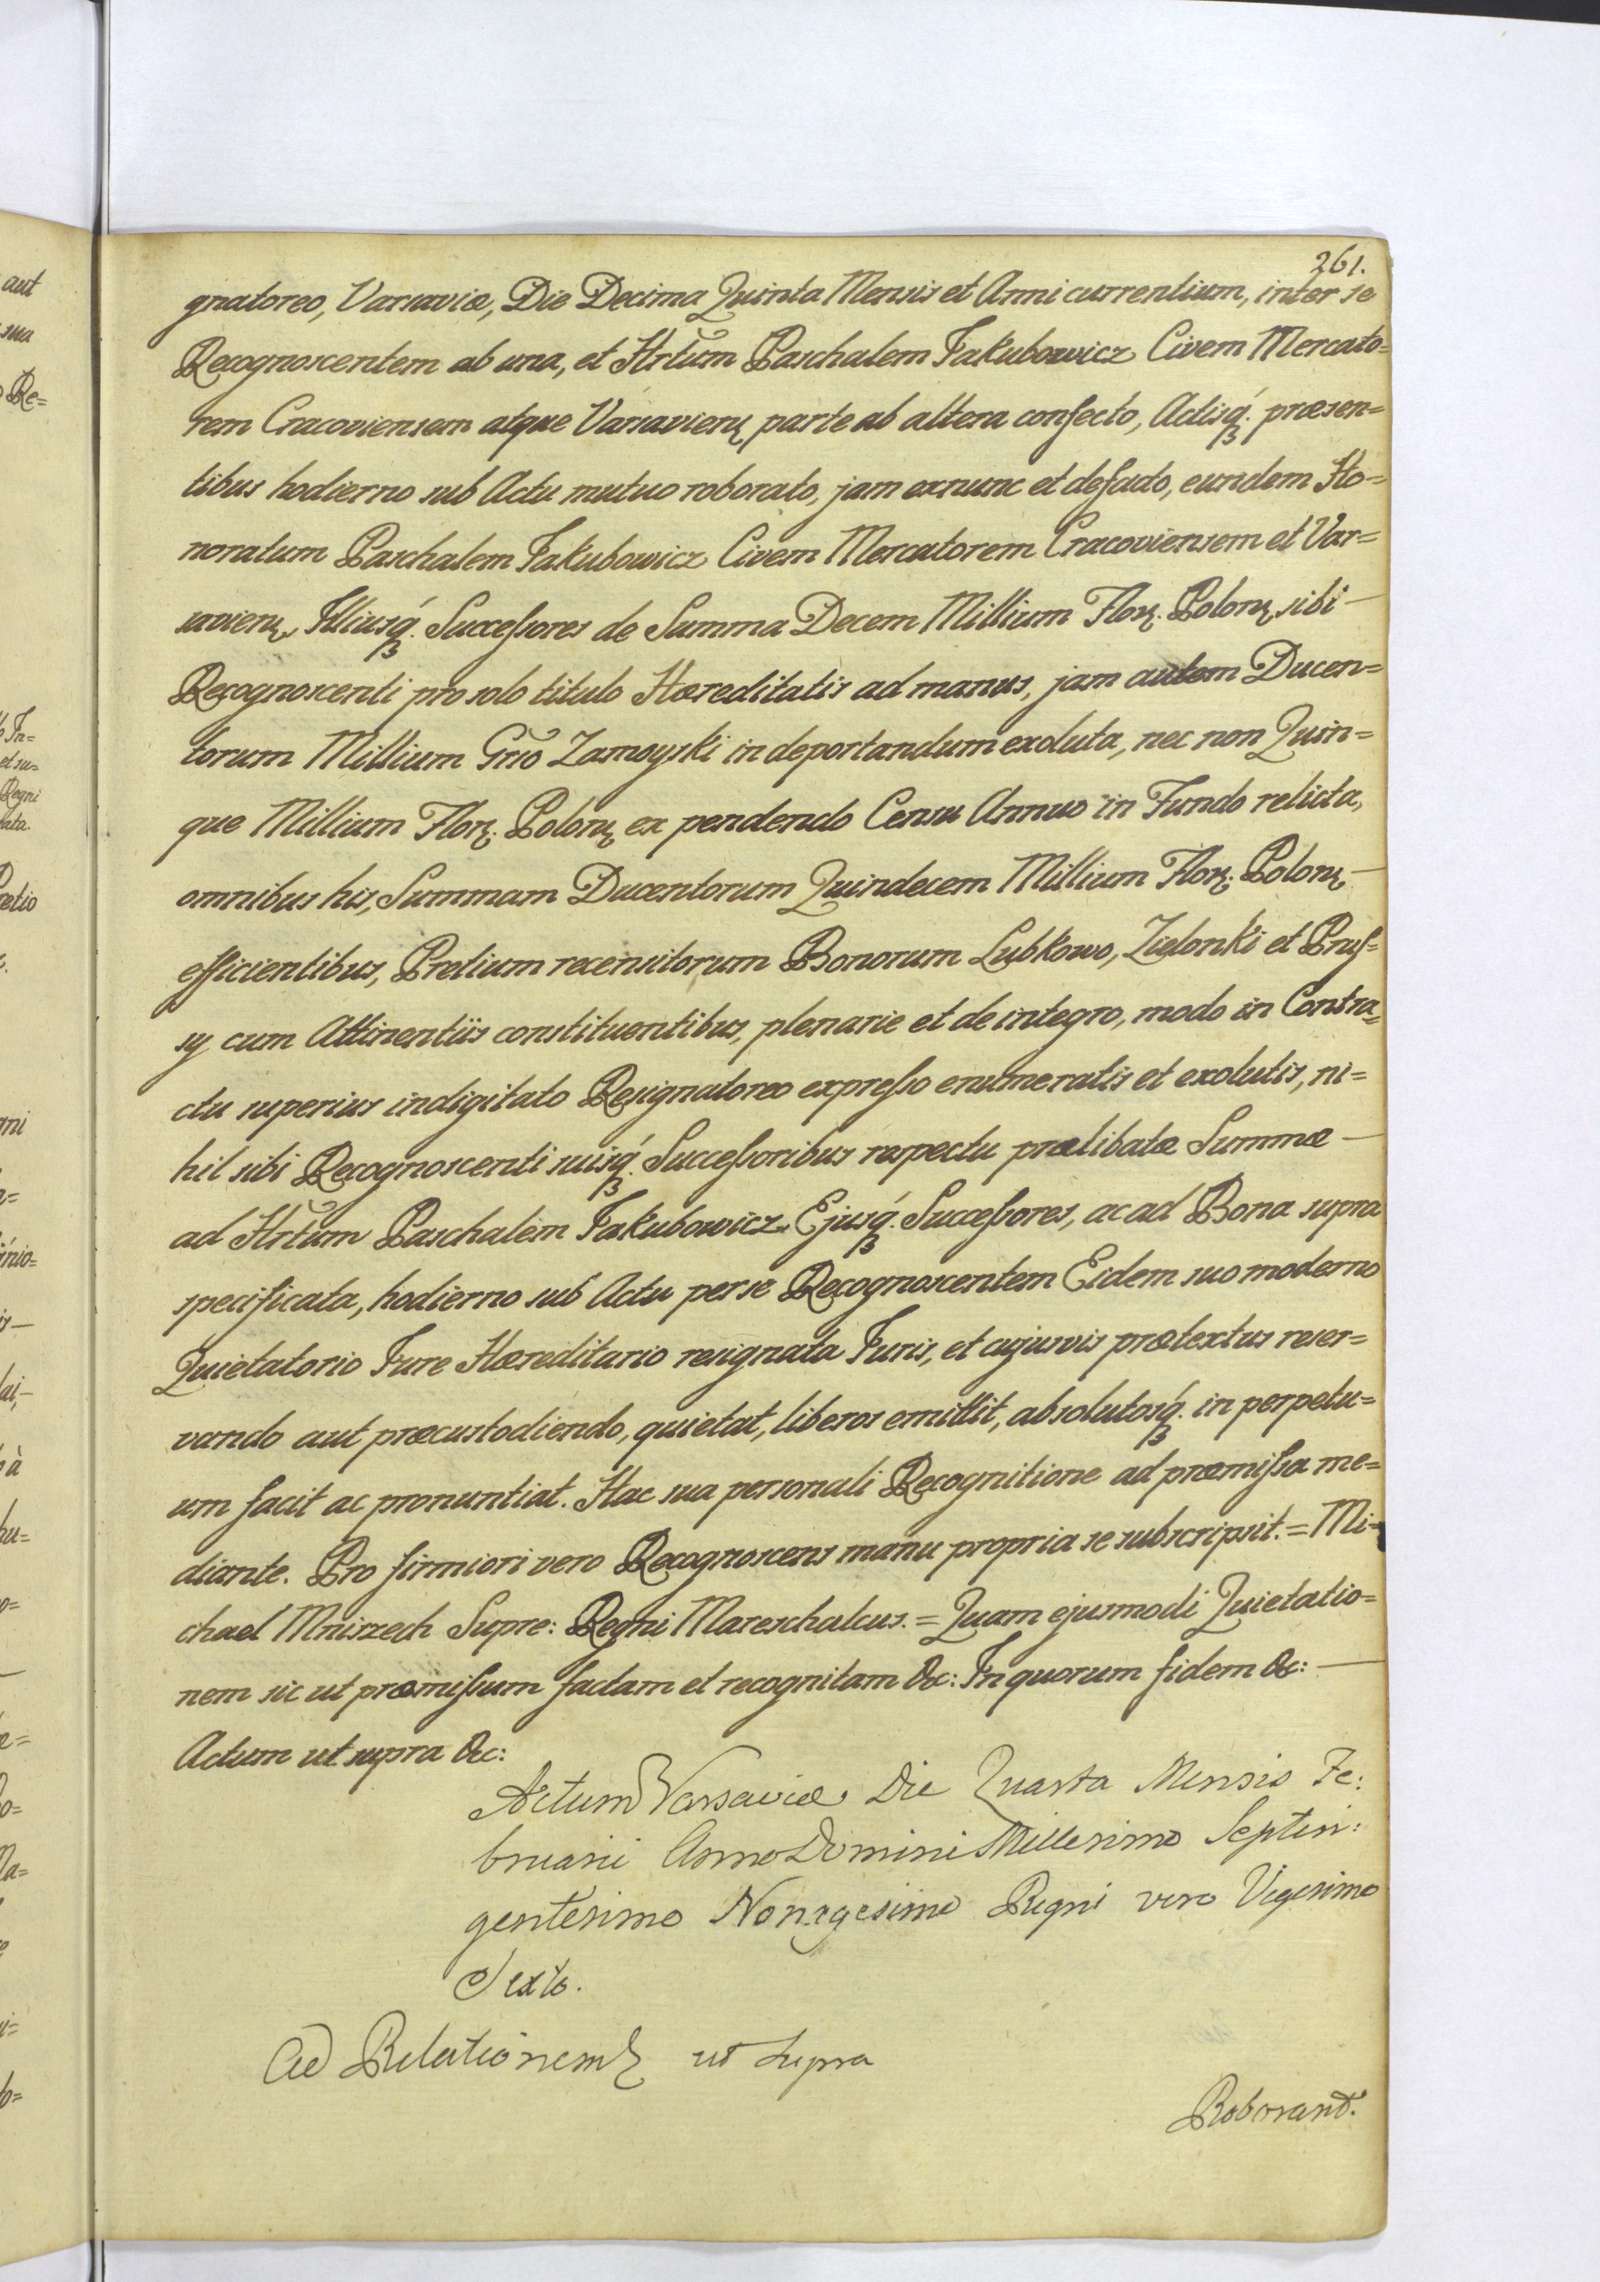 261.
gnatoreo, Varsaviæ, Die Decima Quinta Mensis et Anni currentium, inter se
Recognoscentem ab una, et Hrtum Paschalem Jakubowicz Civem Mercato=
rem Cracoviensem atque Varsavien, parte ab altera confecto, Actisq. præsen=
tibus hodierno sub Actu mutuo roborato, jam exnunc et defacto, eundem Ho=
noratum Paschalem Jakubowicz Civem Mercatorem Cracoviensem et Var=
savien, Illiusq. Successores de Summa Decem Millium Flor. Polon, sibi —
Recognoscenti pro solo titulo Hæreditatis ad manus, jam autem Ducen=
torum Millium Gno Zamoyski in deportandum exoluta, nec non Quin=
que Millium Flor. Polon, ex pendendo Censu Annuo in Fundo relicta,
omnibus his, Summam Ducentorum Quindecem Millium Flor. Polon, —
efficientibus, Pretium recensitorum Bonorum Lubkowo, Zielonki et Prus=
sy cum Attinentiis constituentibus, plenarie et de integro, modo in Contra=
ctu superius indigitato Resignatoreo expresso enumeratis et exolutis, ni=
hil sibi Recognoscenti suisq. Successoribus respectu prælibatæ Summæ —
ad Hrtum Paschalem Jakubowicz, Ejusq. Successores, ac ad Bona supra
specificata, hodierno sub Actu per se Recognoscentem Eidem suo moderno
Quietatorio Jure Hæreditario resignata Juris, et cujusvis prætextus reser=
vando aut præcustodiendo, quietat, liberos emittit, absolutosq. in perpetu=
um facit ac pronuntiat. Hac sua personali Recognitione ad præmissa me=
diante. Pro firmiori vero Recognoscens manu propria se subscripsit. = Mi=
chael Mniszech Supre: Regni Mareschalcus. = Quam ejusmodi Quietatio=
nem sic ut præmissum factam et recognitam &c: In quorum fidem &c: —
Actum ut supra &c:
Actum Varsaviæ Die Quarta Mensis Fe:
bruarii Anno Domini Millesimo Septin:
gentesimo Nonagesimo Regni vero Vigesimo
Sexto.
Ad Relationem ut supra
Roborant.